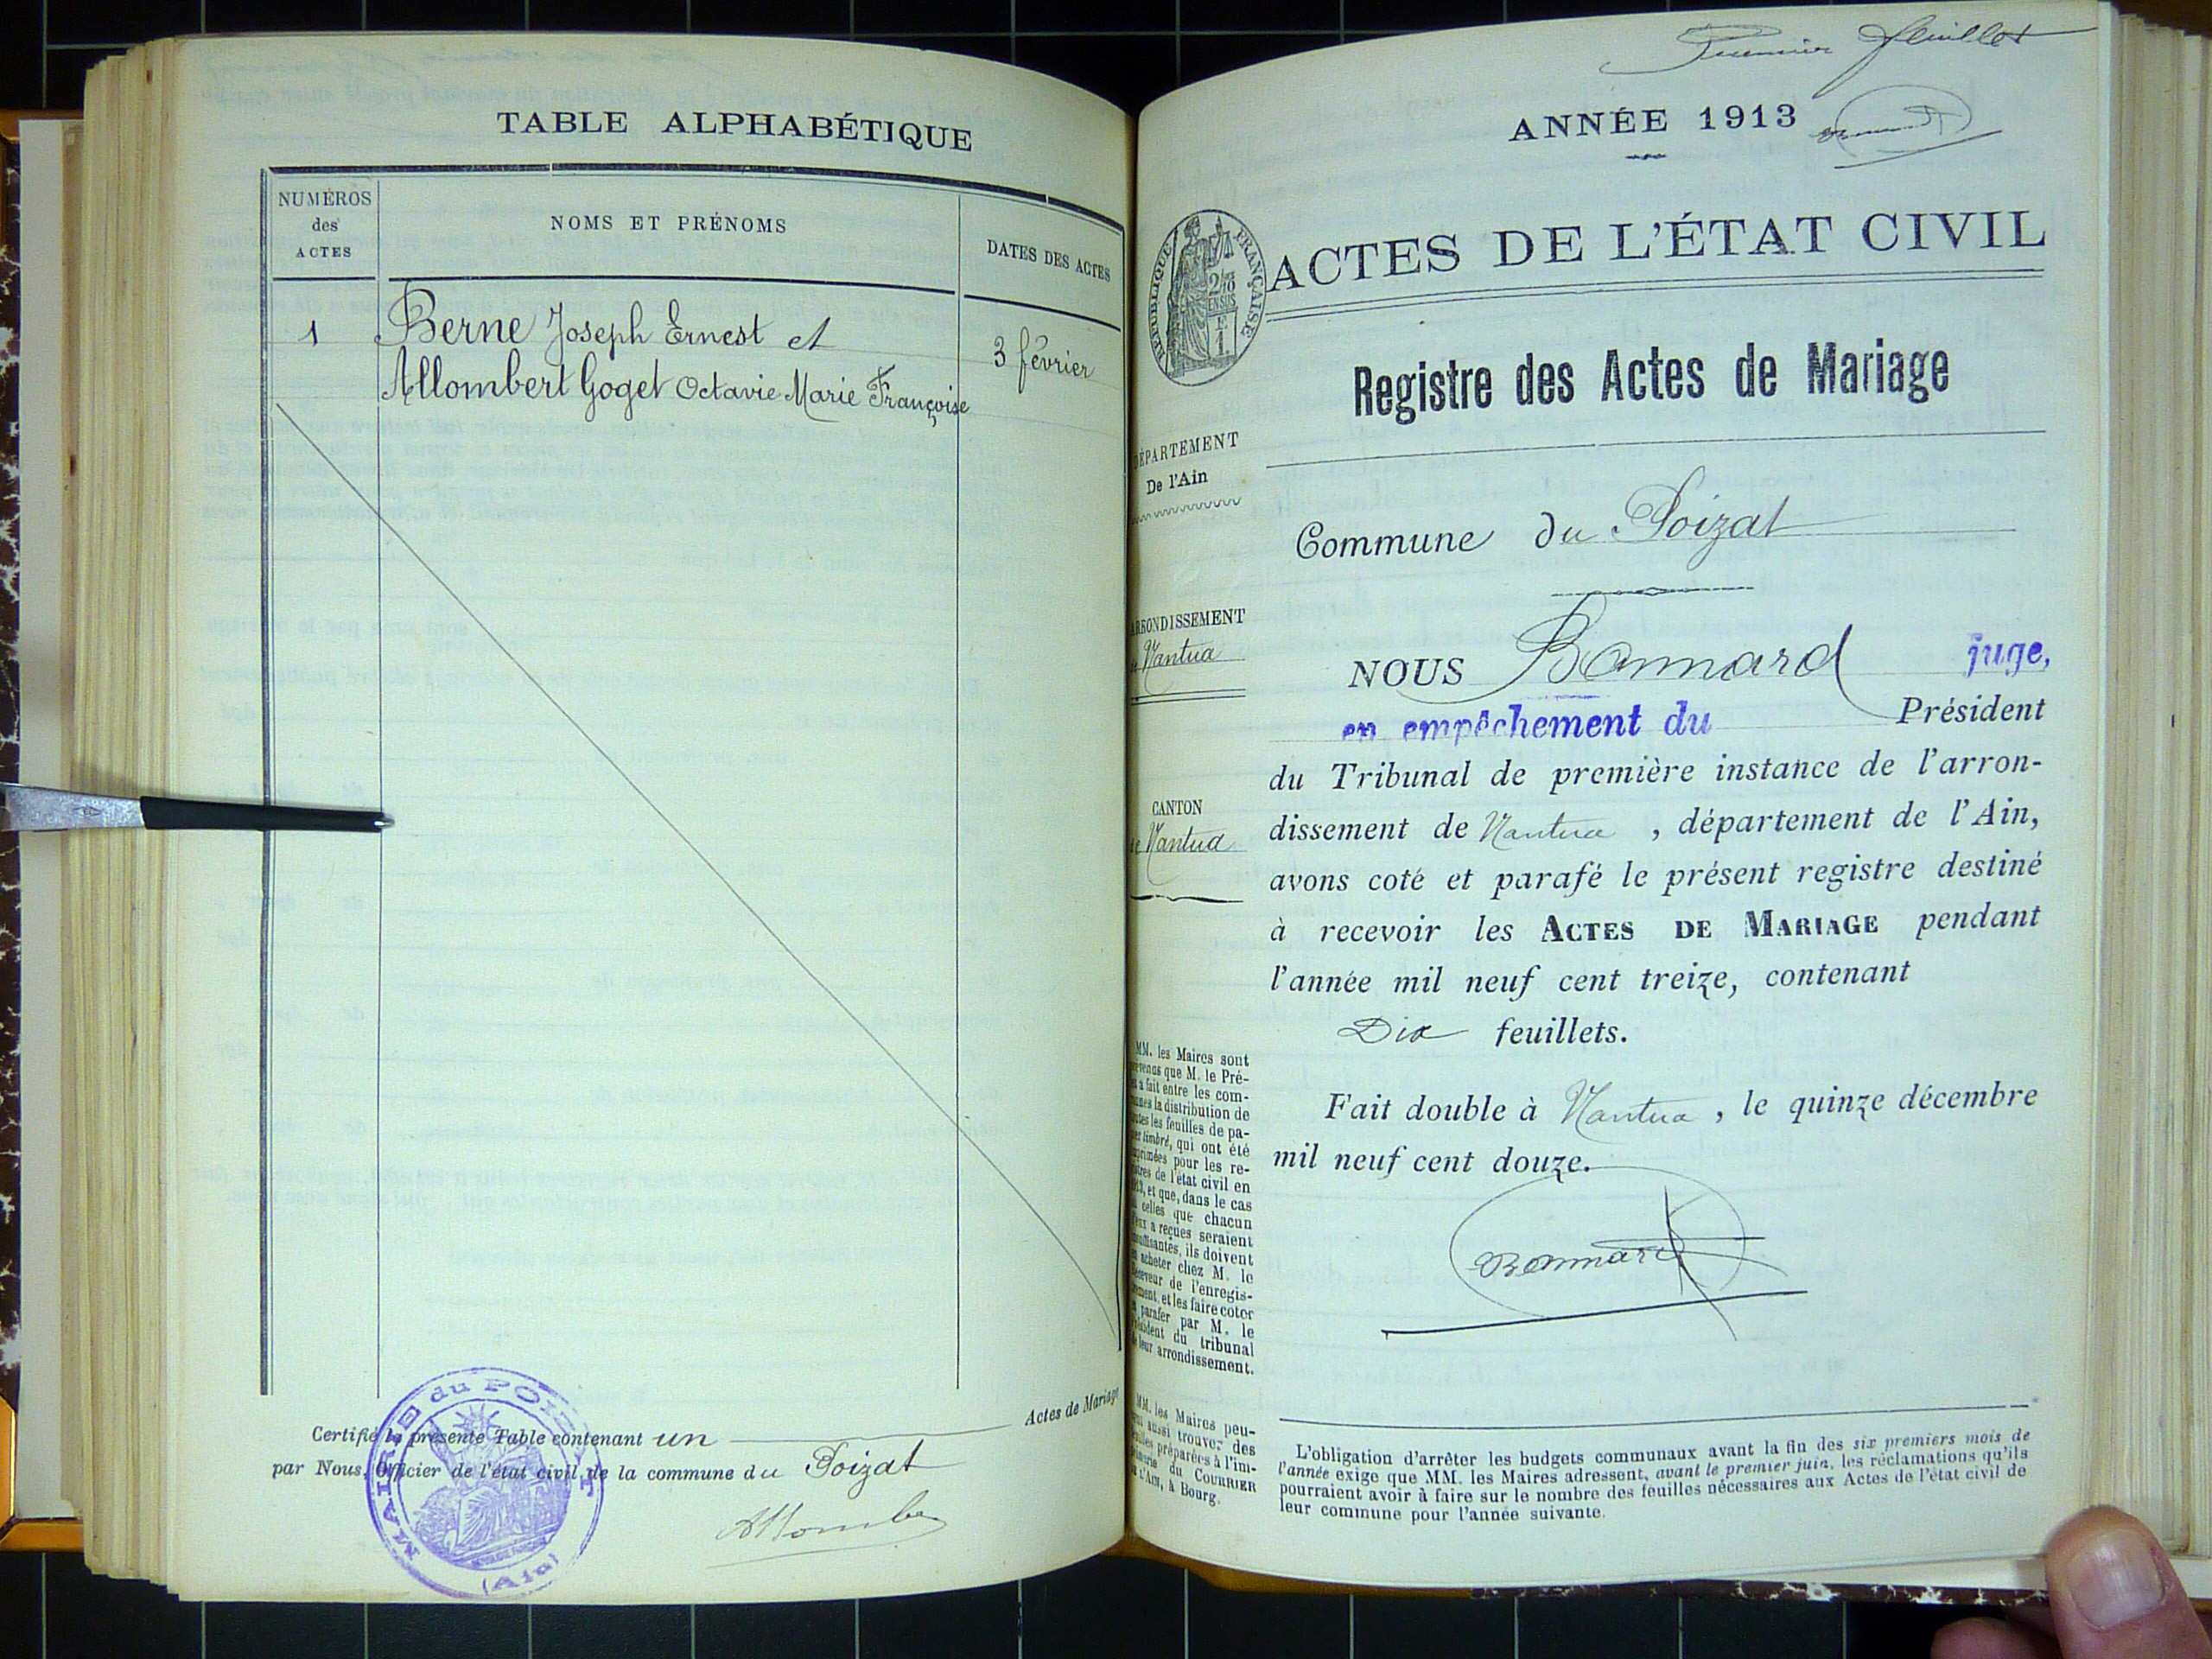 TABLE ALPHABÉTIQUE
NUMÉROS
des
ACTES
NOMS ET PRÉNOMS
DATES DES ACTES
1
Berne Joseph Ernest et
Allombert Goget Octavie Marie Françoise
3 février
Actes de Mariage
Certifié la présente Table contenant un
par Nous, Officier de l'état civil de la commune du Poizat
MAIRIE du POIZAT
(Ain)
Premier feuillet
ANNÉE 1913
RÉPUBLIQUE FRANÇAISE
ACTES DE L'ÉTAT CIVIL
Registre des Actes de Mariage
DÉPARTEMENT
De l'Ain
Commune du Poizat
ARRONDISSEMENT
de Nantua
NOUS Bonnard juge,
en empêchement du Président
du Tribunal de première instance de l'arron-
CANTON
de Nantua
dissement de Nantua, département de l'Ain,
avons coté et parafé le présent registre destiné
à recevoir les ACTES DE MARIAGE pendant
l'année mil neuf cent treize, contenant
Dix feuillets.
Fait double à Nantua, le quinze décembre
mil neuf cent douze.
Bonnard
MM. les Maires sont
que M. le Pré-
a fait entre les com-
la distribution de
les feuilles de pa-
timbré, qui ont été
pour les re-
de l'état civil en
et que, dans le cas
celles que chacun
a reçues seraient
ils doivent
acheter chez M. le
de l'enregis-
et les faire coter
parafer par M. le
du tribunal
leur arrondissement.
MM. les Maires peu-
aussi trouver des
préparées à l'im-
du COURRIER
à Bourg.
L'obligation d'arrêter les budgets communaux avant la fin des six premiers mois de
l'année exige que MM. les Maires adressent, avant le premier juin, les réclamations qu'ils
pourraient avoir à faire sur le nombre des feuilles nécessaires aux Actes de l'état civil de
leur commune pour l'année suivante.